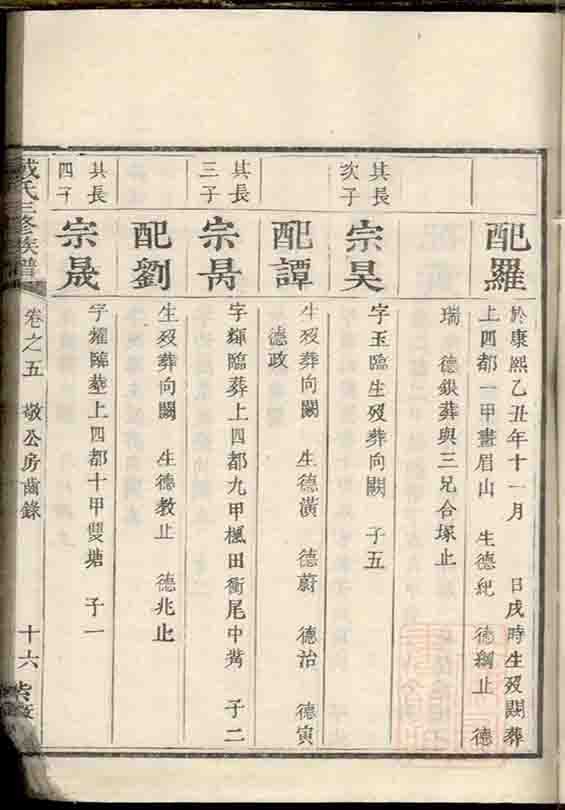 配羅
於康熙乙丑年十一月 日戌時生歿闕葬
上四都一甲畫眉山 生德紀 德綱止 德
瑞 德銀葬與三兄合塚止
其長
次子
宗昊
字玉臨生歿葬向闕 子五
配譚
生歿葬向闕 生德潢 德蔚 德治 德寅
德政
其長
三子
宗昺
字輝臨葬上四都九甲楓田衝尾中嘴 子二
配劉
生歿葬向闕 生德教止 德兆止
其長
四子
宗晟
字耀臨葬上四都十甲雙塘 子一
氏三修族譜
卷之五 敬公房齒錄
十六